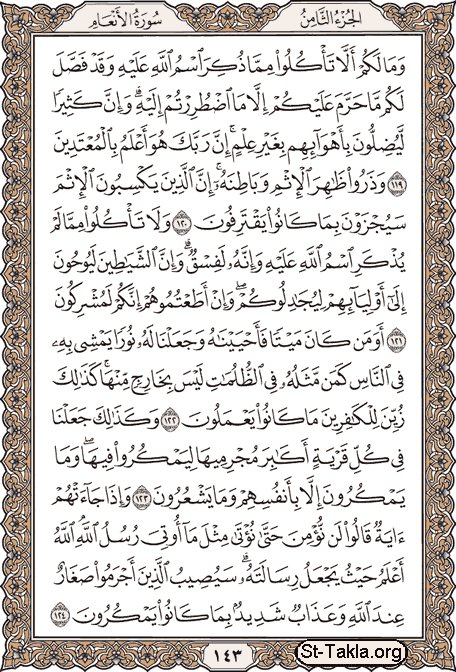 الجزء الثامن
سورة الأنعام
وَمَا لَكُمْ أَلَّا تَأْكُلُوا۟ مِمَّا ذُكِرَ ٱسْمُ ٱللَّهِ عَلَيْهِ وَقَدْ فَصَّلَ
لَكُم مَّا حَرَّمَ عَلَيْكُمْ إِلَّا مَا ٱضْطُرِرْتُمْ إِلَيْهِ ۗ وَإِنَّ كَثِيرًا
لَّيُضِلُّونَ بِأَهْوَآئِهِم بِغَيْرِ عِلْمٍ ۗ إِنَّ رَبَّكَ هُوَ أَعْلَمُ بِٱلْمُعْتَدِينَ
١١٩ وَذَرُوا۟ ظَٰهِرَ ٱلْإِثْمِ وَبَاطِنَهُۥٓ ۚ إِنَّ ٱلَّذِينَ يَكْسِبُونَ ٱلْإِثْمَ
سَيُجْزَوْنَ بِمَا كَانُوا۟ يَقْتَرِفُونَ ١٢٠ وَلَا تَأْكُلُوا۟ مِمَّا لَمْ
يُذْكَرِ ٱسْمُ ٱللَّهِ عَلَيْهِ وَإِنَّهُۥ لَفِسْقٌ ۗ وَإِنَّ ٱلشَّيَٰطِينَ لَيُوحُونَ
إِلَىٰٓ أَوْلِيَآئِهِمْ لِيُجَٰدِلُوكُمْ ۖ وَإِنْ أَطَعْتُمُوهُمْ إِنَّكُمْ لَمُشْرِكُونَ
١٢١ أَوَمَن كَانَ مَيْتًا فَأَحْيَيْنَٰهُ وَجَعَلْنَا لَهُۥ نُورًا يَمْشِى بِهِۦ
فِى ٱلنَّاسِ كَمَن مَّثَلُهُۥ فِى ٱلظُّلُمَٰتِ لَيْسَ بِخَارِجٍ مِّنْهَا ۚ كَذَٰلِكَ
زُيِّنَ لِلْكَٰفِرِينَ مَا كَانُوا۟ يَعْمَلُونَ ١٢٢ وَكَذَٰلِكَ جَعَلْنَا
فِى كُلِّ قَرْيَةٍ أَكَٰبِرَ مُجْرِمِيهَا لِيَمْكُرُوا۟ فِيهَا ۖ وَمَا
يَمْكُرُونَ إِلَّا بِأَنفُسِهِمْ وَمَا يَشْعُرُونَ ١٢٣ وَإِذَا جَآءَتْهُمْ
ءَايَةٌ قَالُوا۟ لَن نُّؤْمِنَ حَتَّىٰ نُؤْتَىٰ مِثْلَ مَآ أُوتِىَ رُسُلُ ٱللَّهِ ۘ ٱللَّهُ
أَعْلَمُ حَيْثُ يَجْعَلُ رِسَالَتَهُۥ ۗ سَيُصِيبُ ٱلَّذِينَ أَجْرَمُوا۟ صَغَارٌ
عِندَ ٱللَّهِ وَعَذَابٌ شَدِيدٌۢ بِمَا كَانُوا۟ يَمْكُرُونَ ١٢٤
١٤٣
St-Takla.org